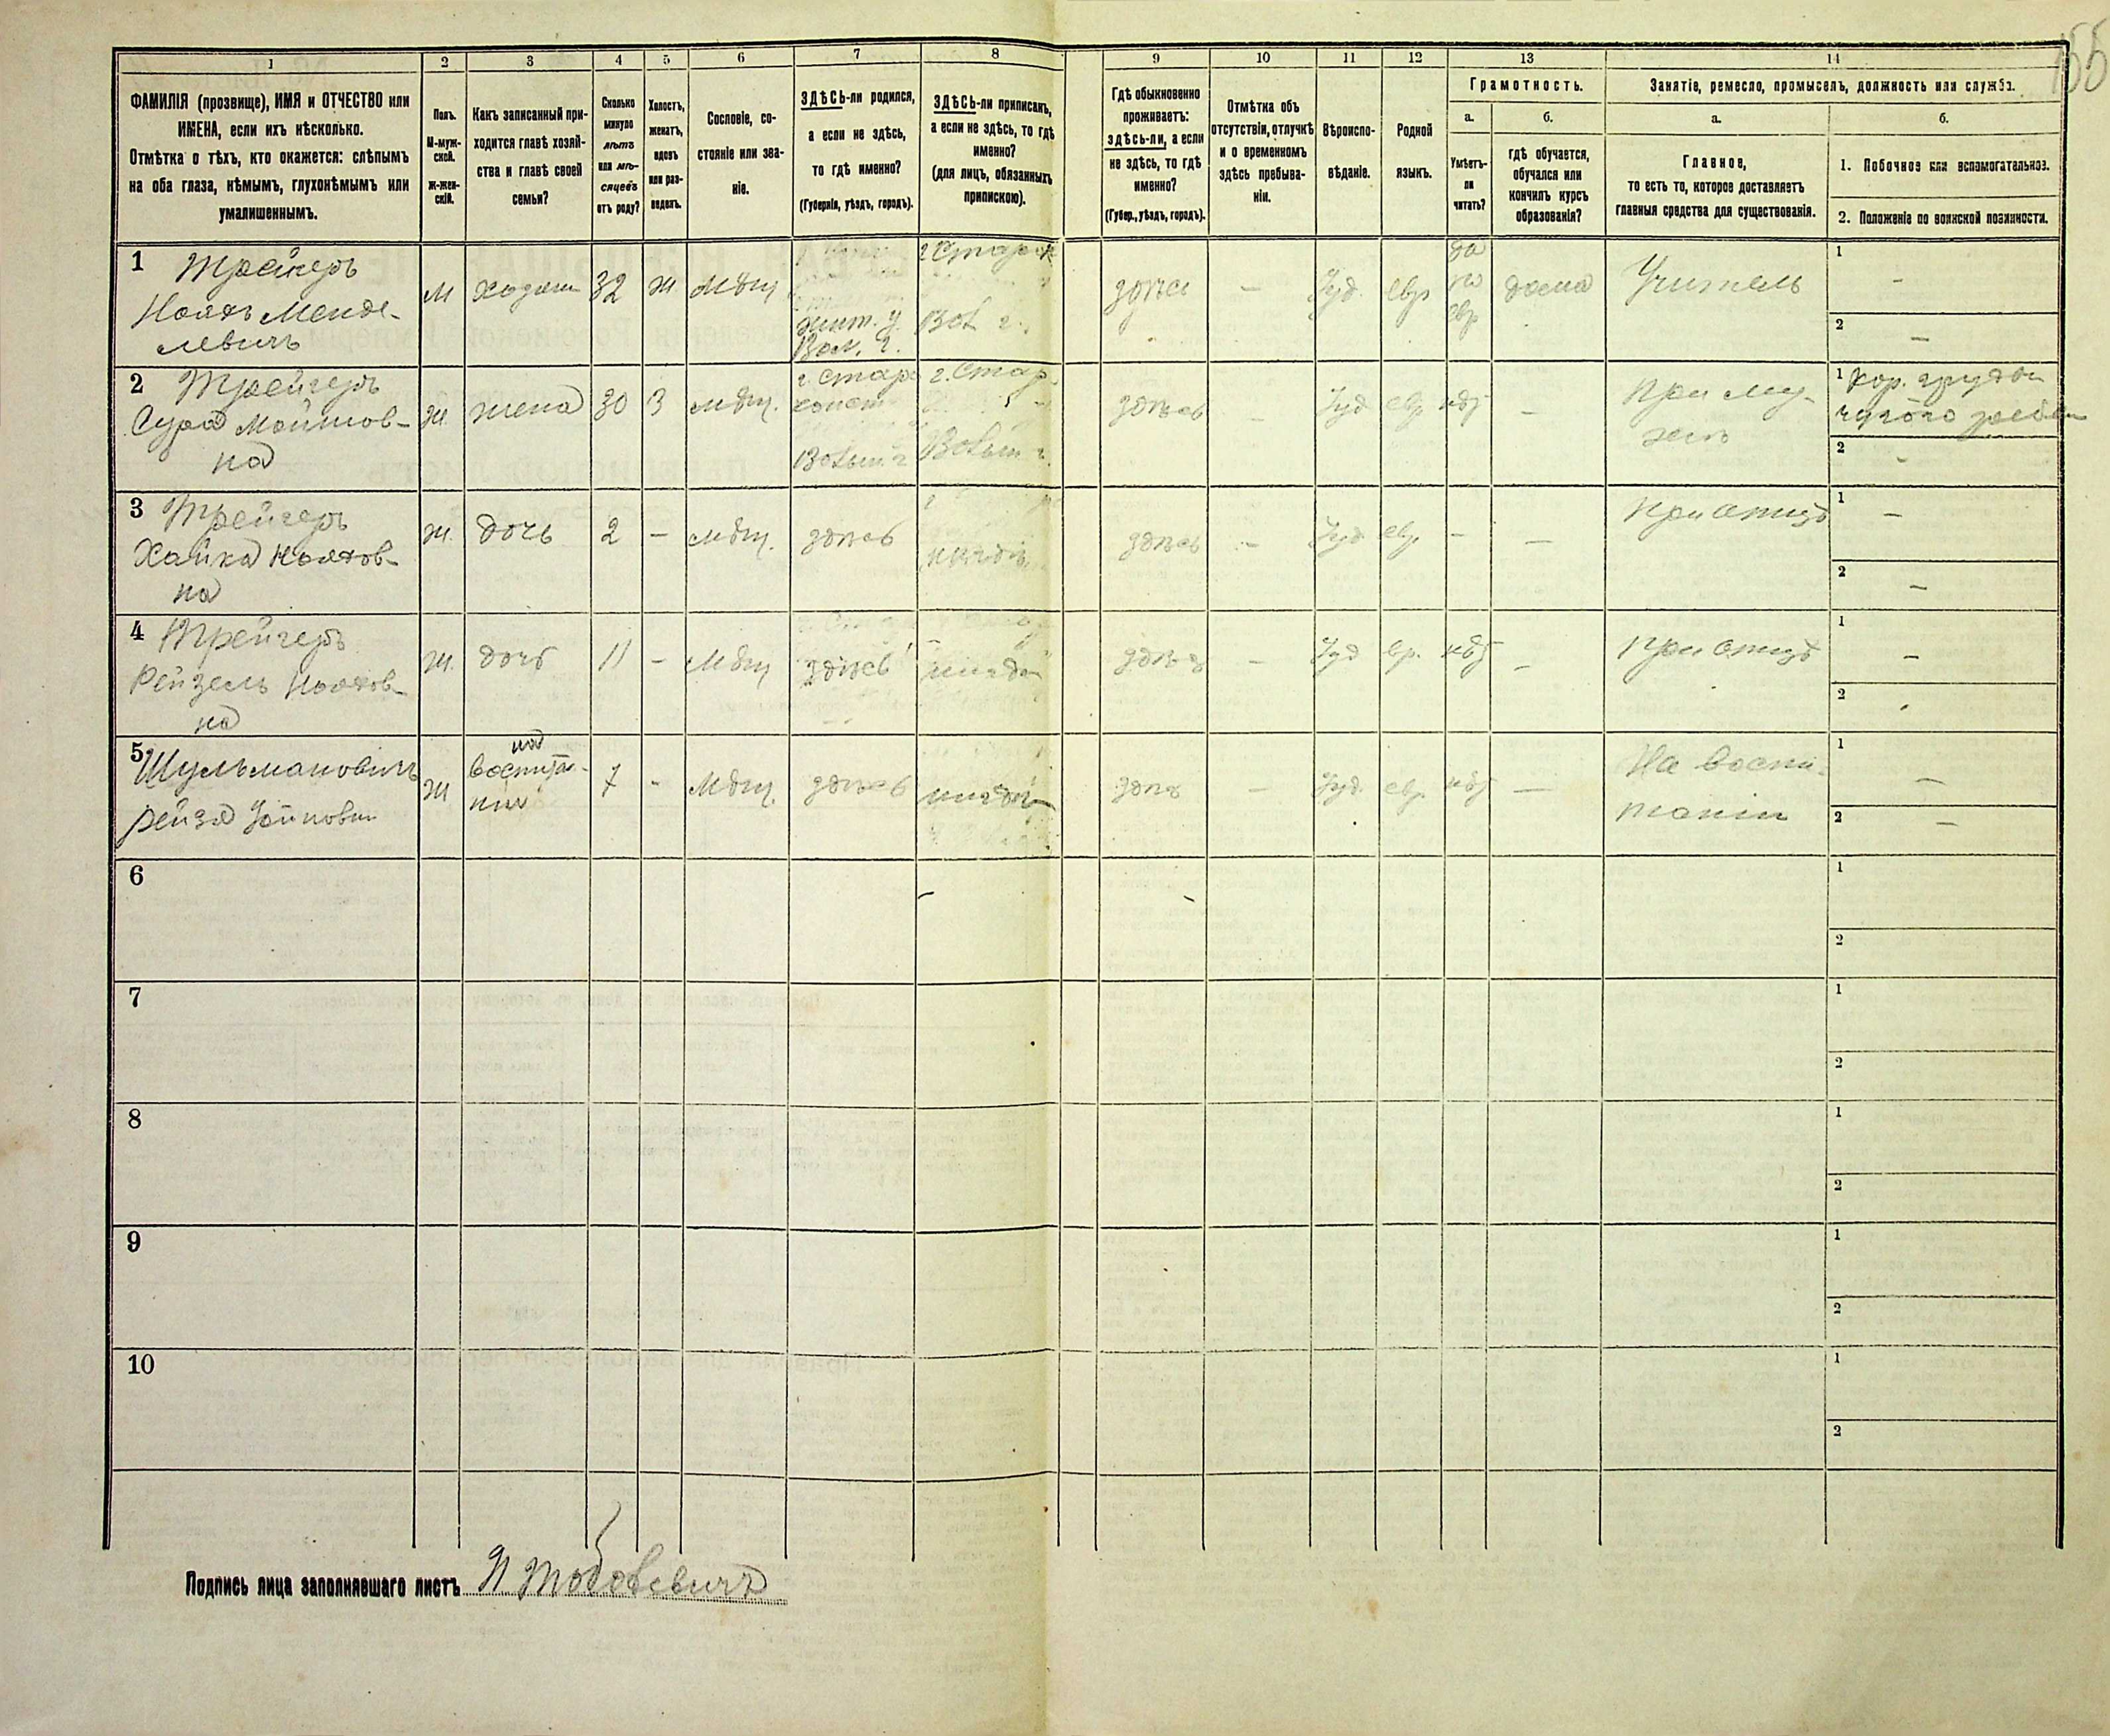 155
1 2 3 4 5 6 7 8 9 10 11 12 13 14
ФАМИЛІЯ (прозвище), ИМЯ и ОТЧЕСТВО или
ИМЕНА, если ихъ нѣсколько.
Отмѣтка о тѣхъ, кто окажется: слѣпымъ
на оба глаза, нѣмымъ, глухонѣмымъ или
умалишеннымъ.
Полъ.
М-муж-
ской.
ж-жен-
скій.
Какъ записанный при-
ходится главѣ хозяй-
ства и главѣ своей
семьи?
Сколько
минуло
лѣтъ
или мѣ-
сяцевъ
отъ роду?
Холостъ,
женатъ,
вдовъ
или раз-
веденъ.
Сословіе, со-
стояніе или зва-
ніе.
ЗДѢСЬ-ли родился,
а если не здѣсь,
то гдѣ именно?
(Губернія, уѣздъ, городъ).
ЗДѢСЬ-ли приписанъ,
а если не здѣсь, то гдѣ
именно?
(для лицъ, обязанныхъ
припискою).
Гдѣ обыкновенно
проживаетъ:
здѣсь-ли, а если
не здѣсь, то гдѣ
именно?
(Губер., уѣздъ, городъ).
Отмѣтка объ
отсутствіи, отлучкѣ
и о временномъ
здѣсь пребыва-
ніи.
Вѣроиспо-
вѣданіе.
Родной
языкъ.
Грамотность.
а.
Умѣетъ-
ли
читать?
б.
гдѣ обучается,
обучался или
кончилъ курсъ
образованія?
Занятіе, ремесло, промыселъ, должность или служба.
а.
Главное,
то есть то, которое доставляетъ
главныя средства для существованія.
б.
1. Побочное или вспомогательное.
2. Положеніе по воинской повинности.
1 Трейгеръ
Ноахъ Менде-
левичъ
М
32 ж мѣщ
Жит. у.
Вол. г.
г Старок
Вол г.
здѣсь — Іуд. евр да
по
евр дома Учитель
1 -
2 —
2 Трейгеръ
Сура
на
ж. жена 30 З мѣщ.
г. Старо
конст
Волын. г
г. Стар.
Волын г.
здѣсь — Іуд евр нѣт — При му-
жѣ
1 Кор. грудью
чужого ребен
2 -
3 Трейгеръ
Хайка Ноахов-
на
ж. дочь 2 — мѣщ. здѣсь
здѣсь — Іуд евр. — — При отцѣ
1 —
2 —
4 Трейгеръ
Рейзель Ноахов-
на
ж. дочь 11 — Мѣщ здѣсь
здѣсь — Іуд евр. нѣт — при отцѣ
1 —
2
5 Шульмановичъ
Рейзя
ж
7 - Мѣщ. здѣсь
здѣс — Іуд. евр. нѣт — На воспи-
таніи
1 —
2 —
6 1
2
7 1
2
8 1
2
9 1
2
10 1
2
Подпись лица заполнявшаго листъ